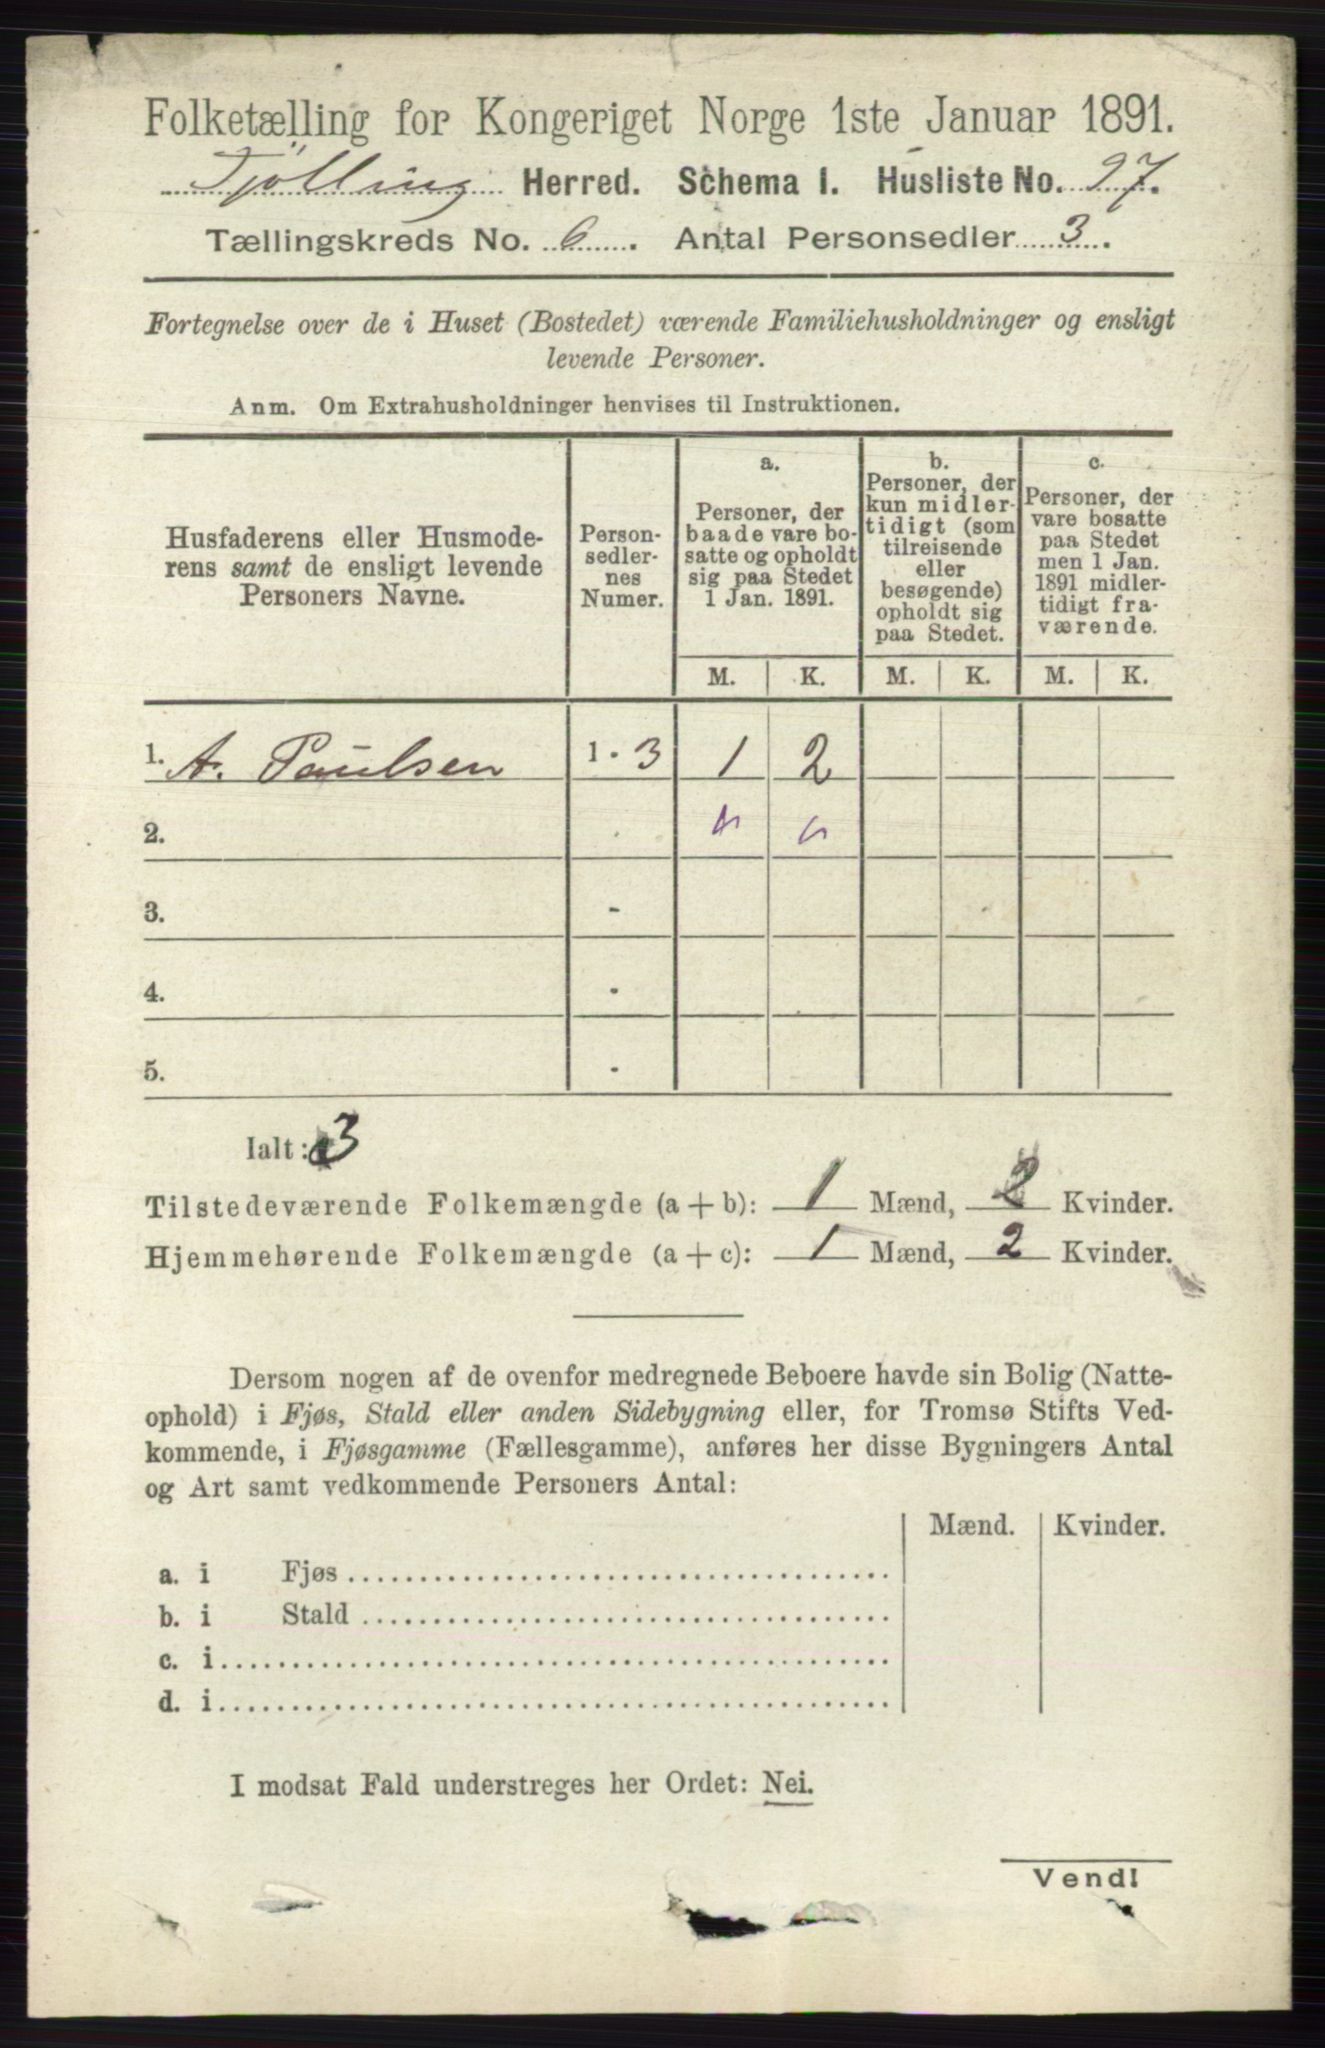 Folketælling for Kongeriget Norge 1ste Januar 1891.
Tjølling Herred. Schema I. Husliste No. 97.
Tællingskreds No. 6. Antal Personsedler 3.
Fortegnelse over de i Huset (Bostedet) værende Familiehusholdninger og ensligt
levende Personer.
Anm. Om Extrahusholdninger henvises til Instruktionen.
Husfaderens eller Husmode-
rens samt de ensligt levende
Personers Navne.
Person-
sedler-
nes
Numer.
a.
Personer, der
baade vare bo-
satte og opholdt
sig paa Stedet
1 Jan. 1891.
b.
Personer, der
kun midler-
tidigt (som
tilreisende
eller
besøgende)
opholdt sig
paa Stedet.
c.
Personer, der
vare bosatte
paa Stedet
men 1 Jan.
1891 midler-
tidigt fra-
værende.
M. K. M. K. M. K.
1. A. Paulsen 1 - 3 1 2
2.
3. -
4. -
5. -
Ialt: 3
Tilstedeværende Folkemængde (a + b): 1 Mænd, 2 Kvinder.
Hjemmehørende Folkemængde (a + c): 1 Mænd, 2 Kvinder.
Dersom nogen af de ovenfor medregnede Beboere havde sin Bolig (Natte-
ophold) i Fjøs, Stald eller anden Sidebygning eller, for Tromsø Stifts Ved-
kommende, i Fjøsgamme (Fællesgamme), anføres her disse Bygningers Antal
og Art samt vedkommende Personers Antal:
Mænd. Kvinder.
a. i Fjøs
b. i Stald
c. i
d. i
I modsat Fald understreges her Ordet: Nei.
Vend!